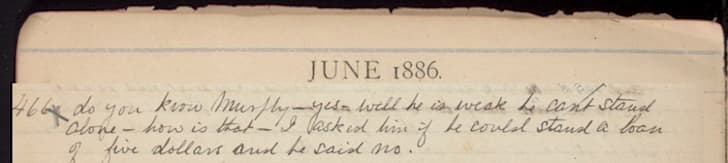 JUNE 1886.
466 x do you know Murphy — yes — well he is weak he can't stand
alone — how is that — I asked him if he could stand a loan
of five dollars and he said no.